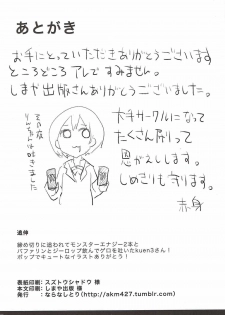 あとがき
お手にとっていただきありがとうございます
ところどころ アレですみません。
しまや出版さんありがとうございました。
大手サークルになって
たくさん刷って
恩がえしします。
しめきりも守ります。
赤身
追伸
締め切りに追われてモンスターエナジー2本と
バファリンとジーロップ飲んでゲロを吐いたkuen3さん！
ポップでキュートなイラストありがとう！
表紙印刷：スズトウシャドウ 様
本文印刷：しまや出版 様
発行　：ならなしとり(http://akm427.tumblr.com)